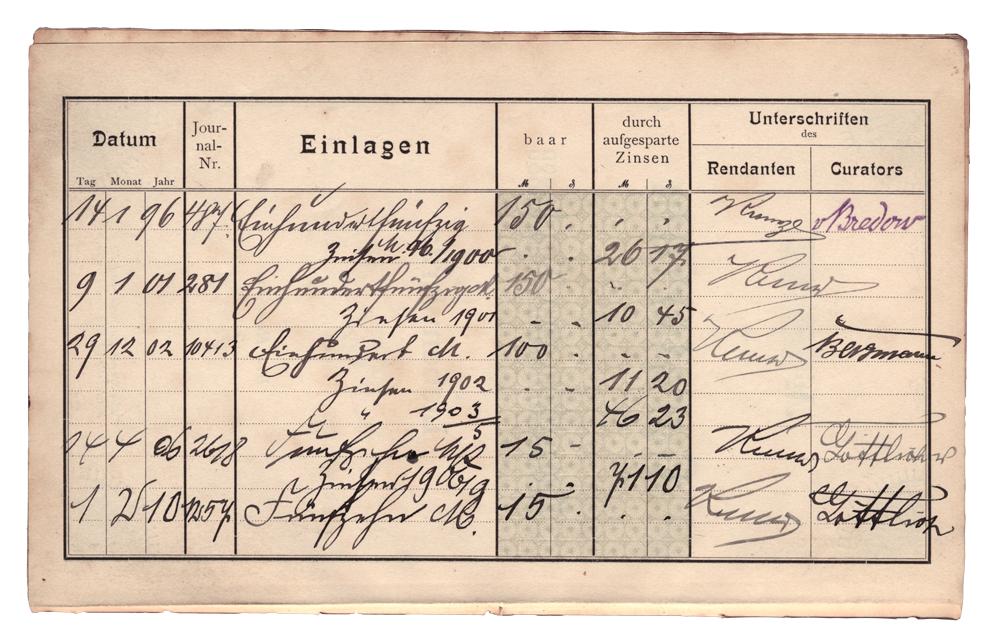 Datum Jour- nal- Nr. Einlagen baar durch aufgesparte Zinsen Unterschriften des
Tag Monat Jahr M ₰ M ₰ Rendanten Curators
14 1 96 487 Einhundertfünfzig 150 . . . Kunze v Bredow
Zinsen 96/1900 . . 26 17
9 1 01 281 Einhundertfünfzig M. 150 . . .
Zinsen 1901 - - 10 45
29 12 02 10413 Einhundert M. 100 . - - Bergmann
Zinsen 1902 . - 11 20
" 1903/5 46 23
14 4 06 2618 Fünfzehn M 15 - - -
Zinsen 1906/9 . . 71 10
1 2 10 1257 Fünfzehn M. 15 . . .